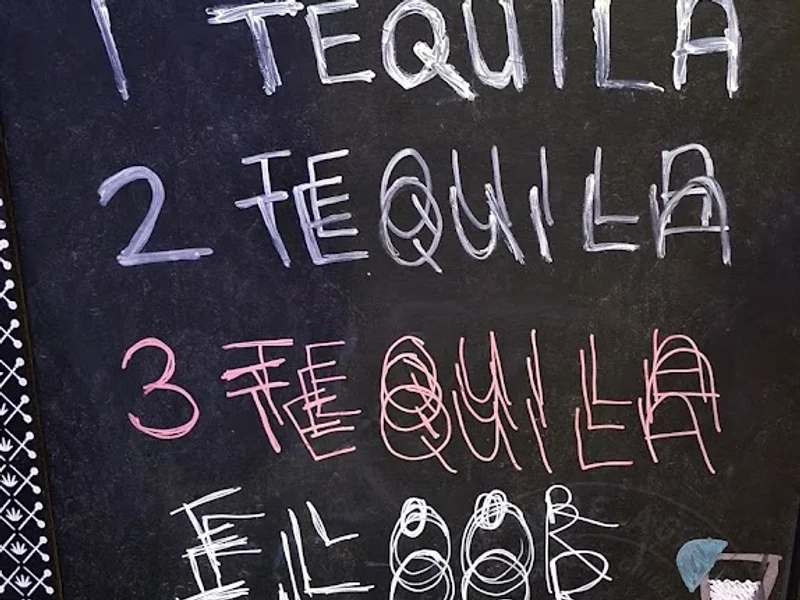 1 TEQUILA
2 TEQUILA
3 TEQUILA
FLOOR